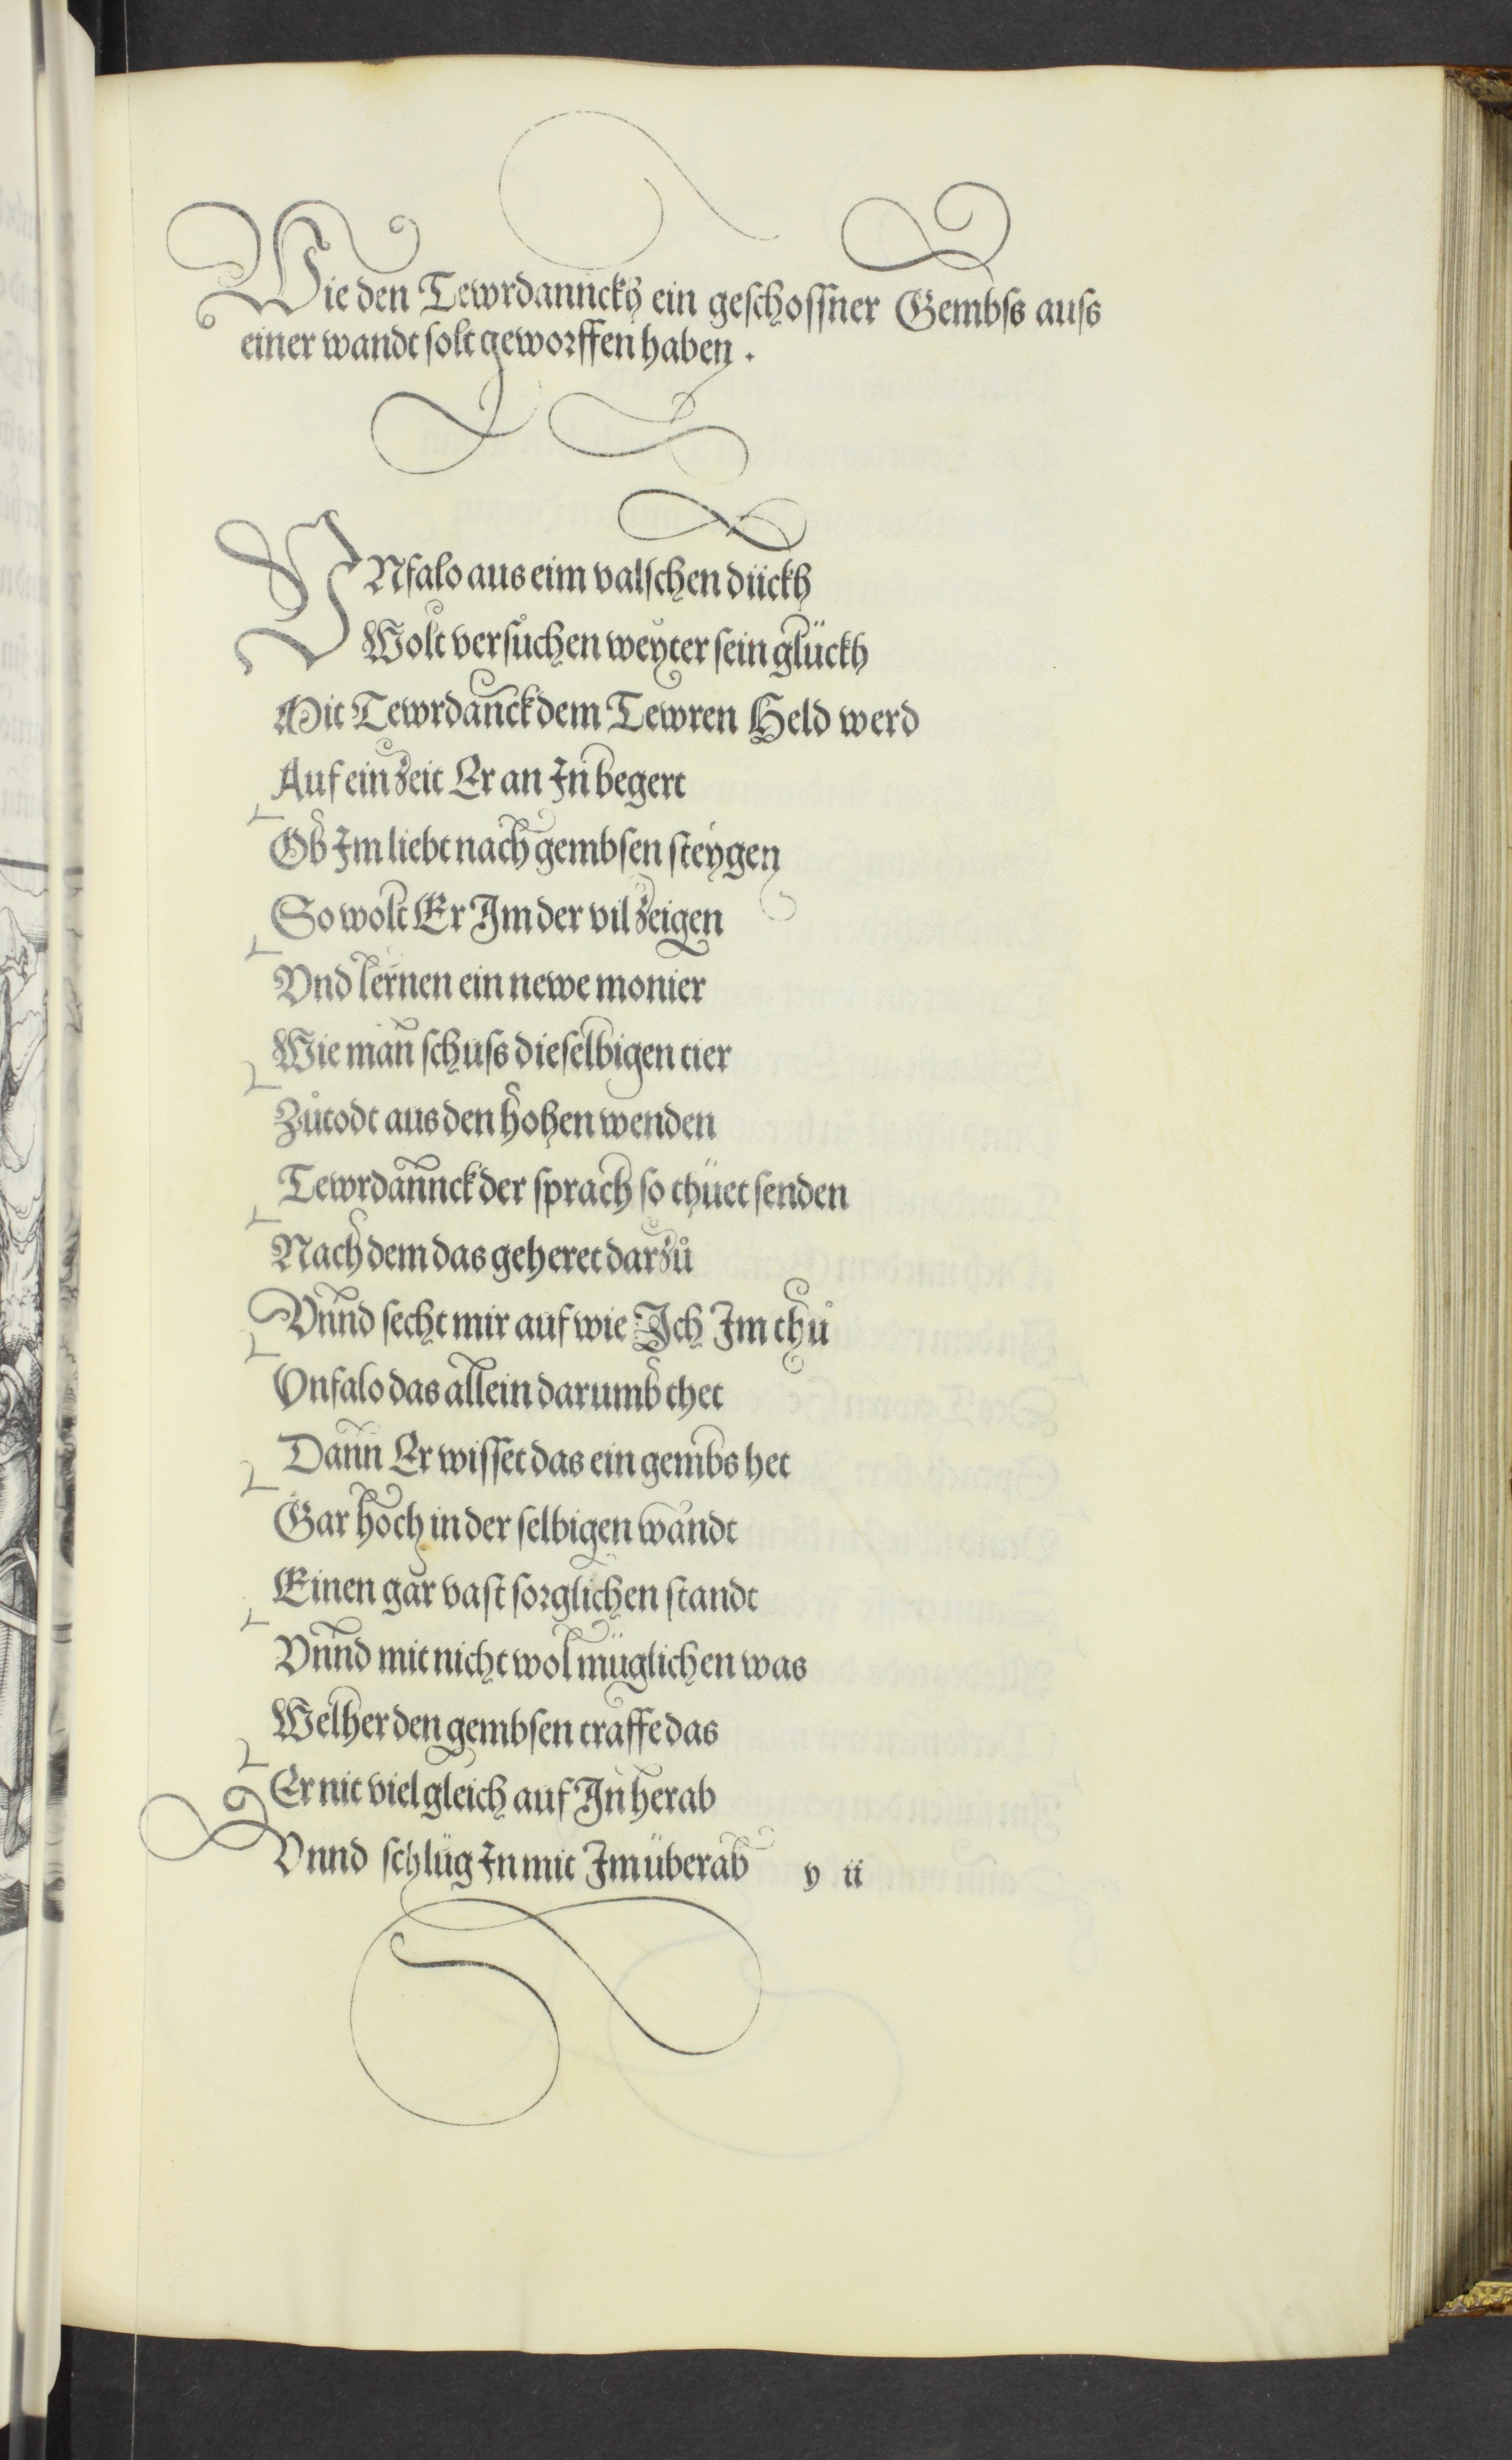 Wie den Tewrdannckh ein geschossner Gembss auss
einer wandt solt geworffen haben.
VNfalo aus eim valschen dückh
Wolt versůchen weyter sein glückh
Mit Tewrdannck dem Tewren Held werd
Auf ein zeit Er an In begert
Ob Im liebt nach gembsen steygen
So wolt Er Im der vil zeigen
Vnd lernen ein newe monier
Wie man schuss die selbigen tier
Zůtodt aus den hohen wenden
Tewrdannck der sprach so thüet senden
Nach dem das geheret darzů
Vnnd secht mir auf wie Ich Im thů
Vnfalo das allein darumb thet
Dann Er wisset das ein gembs het
Gar hoch in der selbigen wandt
Einen gar vast sorglichen standt
Vnnd mit nicht wol müglichen was
Welher den gembsen traffe das
Er nit viel gleich auf In herab
Vnnd schlüg In mit Im überab y ii